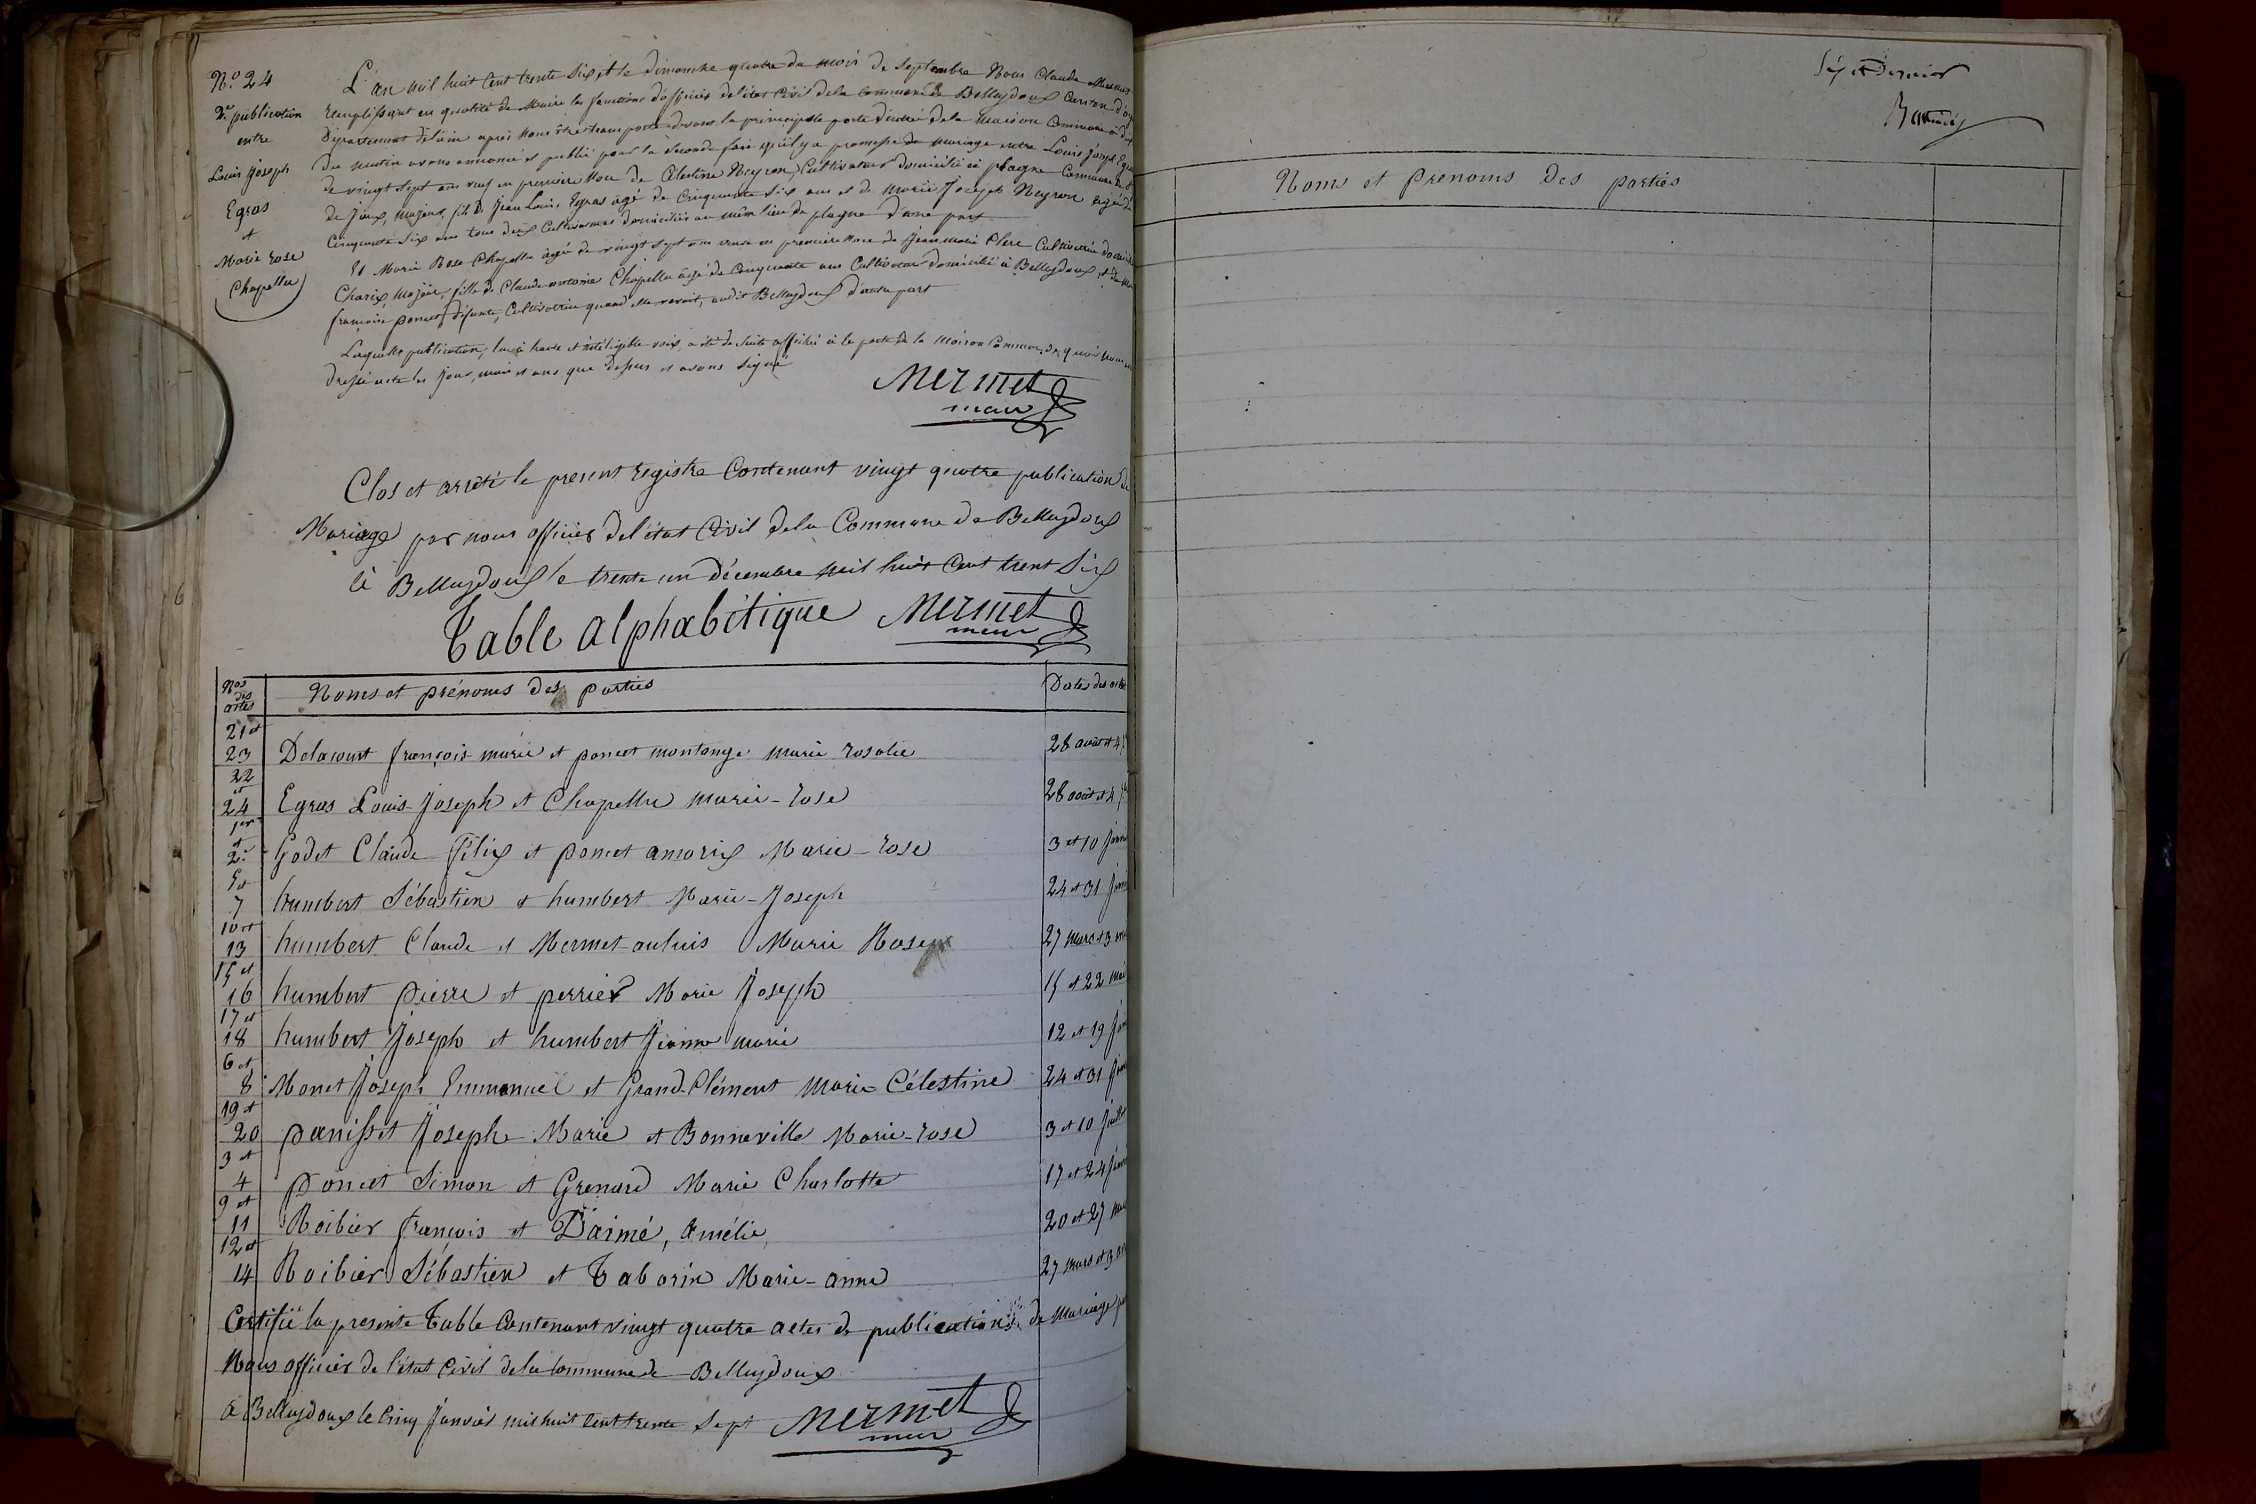 N.o 24
2e publication
entre
Louis Joseph
Egras
et
Marie rose
Chapellu
L'an mil huit Cent trente Six et le dimanche quatre du mois de Septembre Nous Claude
remplissant en qualité de Maire les fonctions d'officier de l'état Civil de la commune de Belleydoux Canton
Département de l'ain après nous être transporté devant la principale porte d'entrée de la maison Commune à
du matin avons annoncé et publié pour la Seconde fois qu'il y a promesse de mariage entre Louis Joseph
de vingt Sept ans veuf en première Noce de Célestine Neyron, Cultivateur domicilié à plagne Commune de
de Joux, majeur, fils de Jean Louis Egras âgé de Cinquante Six ans et de Marie Joseph Neyron âgée de
Cinquante Six ans tous deux Cultivateurs domiciliés au même lieu de plagne d'une part
Et Marie Rose Chapellu âgée de vingt Sept ans veuve en première Noce de Jean marie Clerc Cultivatrice
Charix, Majeure, fille de Claude antoine Chapellu âgé de Cinquante ans Cultivateur domicilié à Belleydoux, et de
françoise poncet défunte, Cultivatrice quand elle vivait, audit Belleydoux d'autre part
Laquelle publication, lue à haute et intéligible voix, a été de Suite affichée à la porte de la Maison Commune, de quoi
dressé acte les Jour, mois et ans que dessus et avons Signé
Mermet
maire
Clos et arrêté le present registre Contenant vingt quatre publication de
Mariage par nous officier de l'état Civil de la Commune de Belleydoux
à Belleydoux le trente un décembre mil huit Cent trent Six
Table alphabétique Mermet
maire
Nos des actes Noms et prénoms des parties Dates des actes
21 et 23 Delacourt françois marie et poncet montange marie rosalie 28 août et 4
22 et 24 Egras Louis Joseph et Chapellu marie-rose 28 août et 4
1er et 2e Godet Claude Félix et poncet amorix Marie-rose 3 et 10
5 et 7 humbert Sébastien et humbert Marie-Joseph 24 et 31
10 et 13 humbert Claude et Mermet-auluis Marie Rose 27 mars et 3
15 et 16 humbert pierre et perrier Marie Joseph 15 et 22 mai
17 et 18 humbert Joseph et humbert Jeanne marie 12 et 19
6 et 8 Monet Joseph Emmanuel et Grand-Clément Marie Célestine 24 et 31
19 et 20 panisset Joseph-Marie et Bonneville Marie-rose 3 et 10
3 et 4 poncet Simon et Grenard Marie Charlotte 17 et 24
9 et 11 Roibier françois et Daimé, Amélie, 20 et 27
12 et 14 Roibier Sébastien et Taborin Marie-anne 27 mars et 3
Certifié la présente Table Contenant vingt quatre actes de publications de Mariage
Nous officier de l'état Civil de la commune de Belleydoux
à Belleydoux le Cinq Janvier mil huit Cent trente Sept Mermet
maire
Sept et Dernier
Noms et prenoms des parties